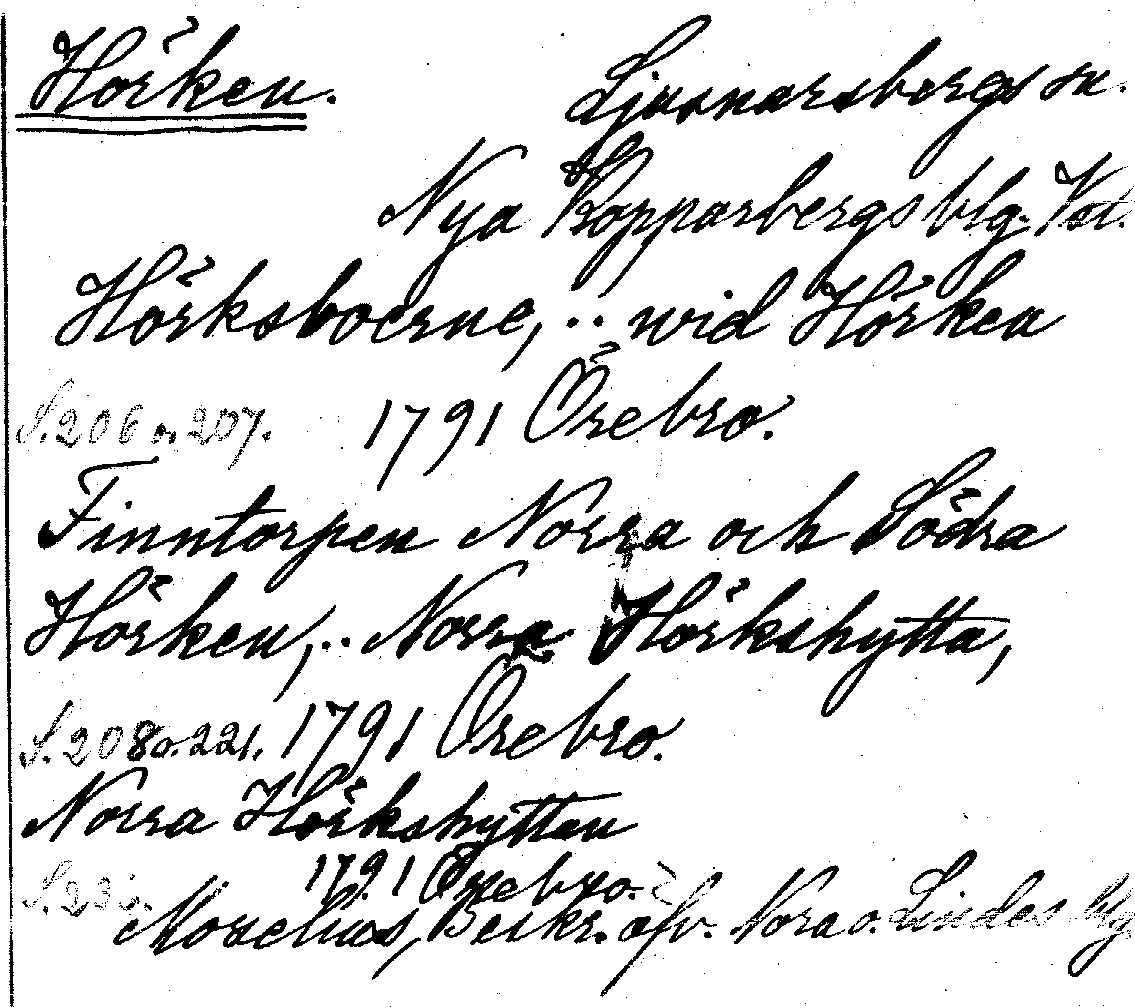 Hörken. Ljusnarsbergs sn.
Nya Kopparbergs blg. Vstm.
Hörksboerne, .. wid Hörken
S. 206 o. 207. 1791 Örebro.
Finntorpen Norra och Södra
Hörken, .. Norra Hörkshytta,
S. 208 o. 221. 1791 Örebro.
Norra Hörkshyttan
S. 23 1791 Örebro.
Moxelius, Beskr. öfv. Nora o. Lindes blg